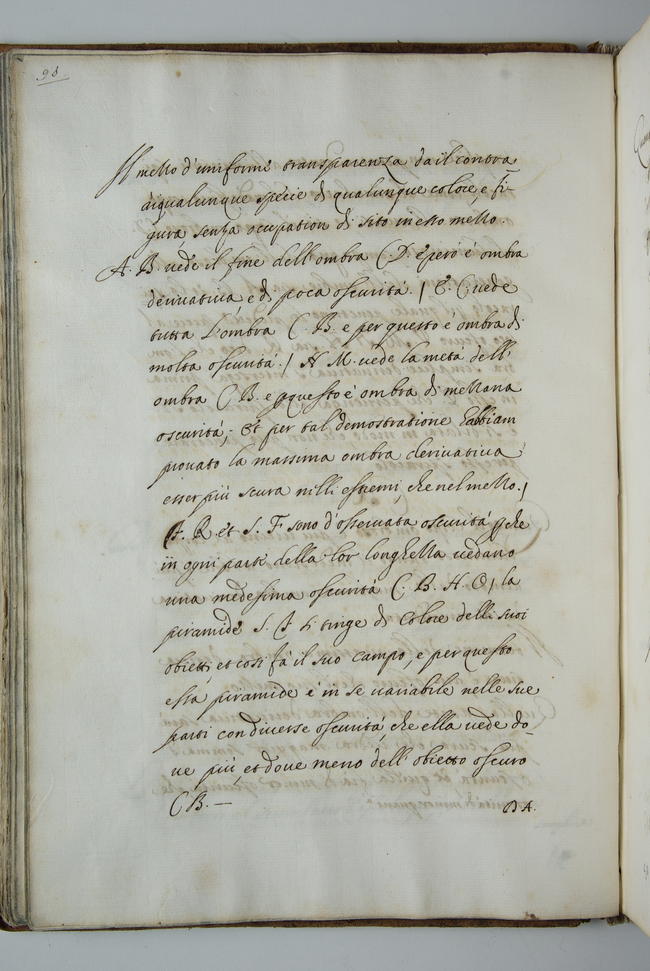 98
Il mezzo d'uniforme transparenza da il contra
di qualunque specie di qualunque colore, e fi-
gura, senza ocupation di sito in esso mezzo.
A. B. vede il fine dell'ombra C. D. e però è ombra
derivativa e di poca oscurità. / E. C. vede
tutta L'ombra C. B. e per questo è ombra di
molta oscurità. / N M. vede la metà dell'
ombra C B. e pquesto è ombra di mezzana
oscurità; Et per tal demostratione habbiam
provato la massima ombra derivativa
esser più scura nelli estremi, che nel mezzo. /
A. R et S. F sono d'osservata oscurità pche
in ogni parte della lor longhezza vedano
una medesima oscurità C. B. H. O, la
piramide S. A ti tinge di colore delli suoi
obietti, et così fà il suo campo, e per questo
essa piramide è in se variabile nelle sue
parti con diverse oscurità, che ella vede do-
ve più, et dove meno dell'obietto oscuro
C B. —
B A.